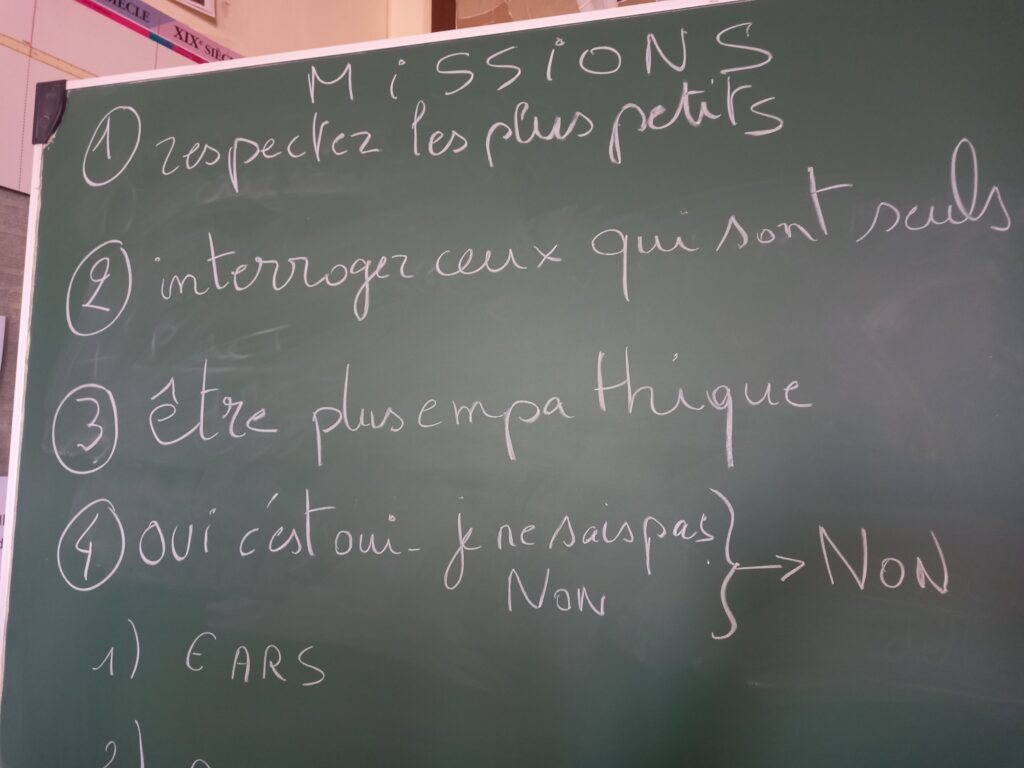 SIÈCLE
XIXe SIÈCLE
MiSSiONS
1 respectez les plus petits
2 interroger ceux qui sont seuls
3 être plus empathique
4 OUi c'est oui - je ne sais pas } → NON
NON
1) CARS
2)